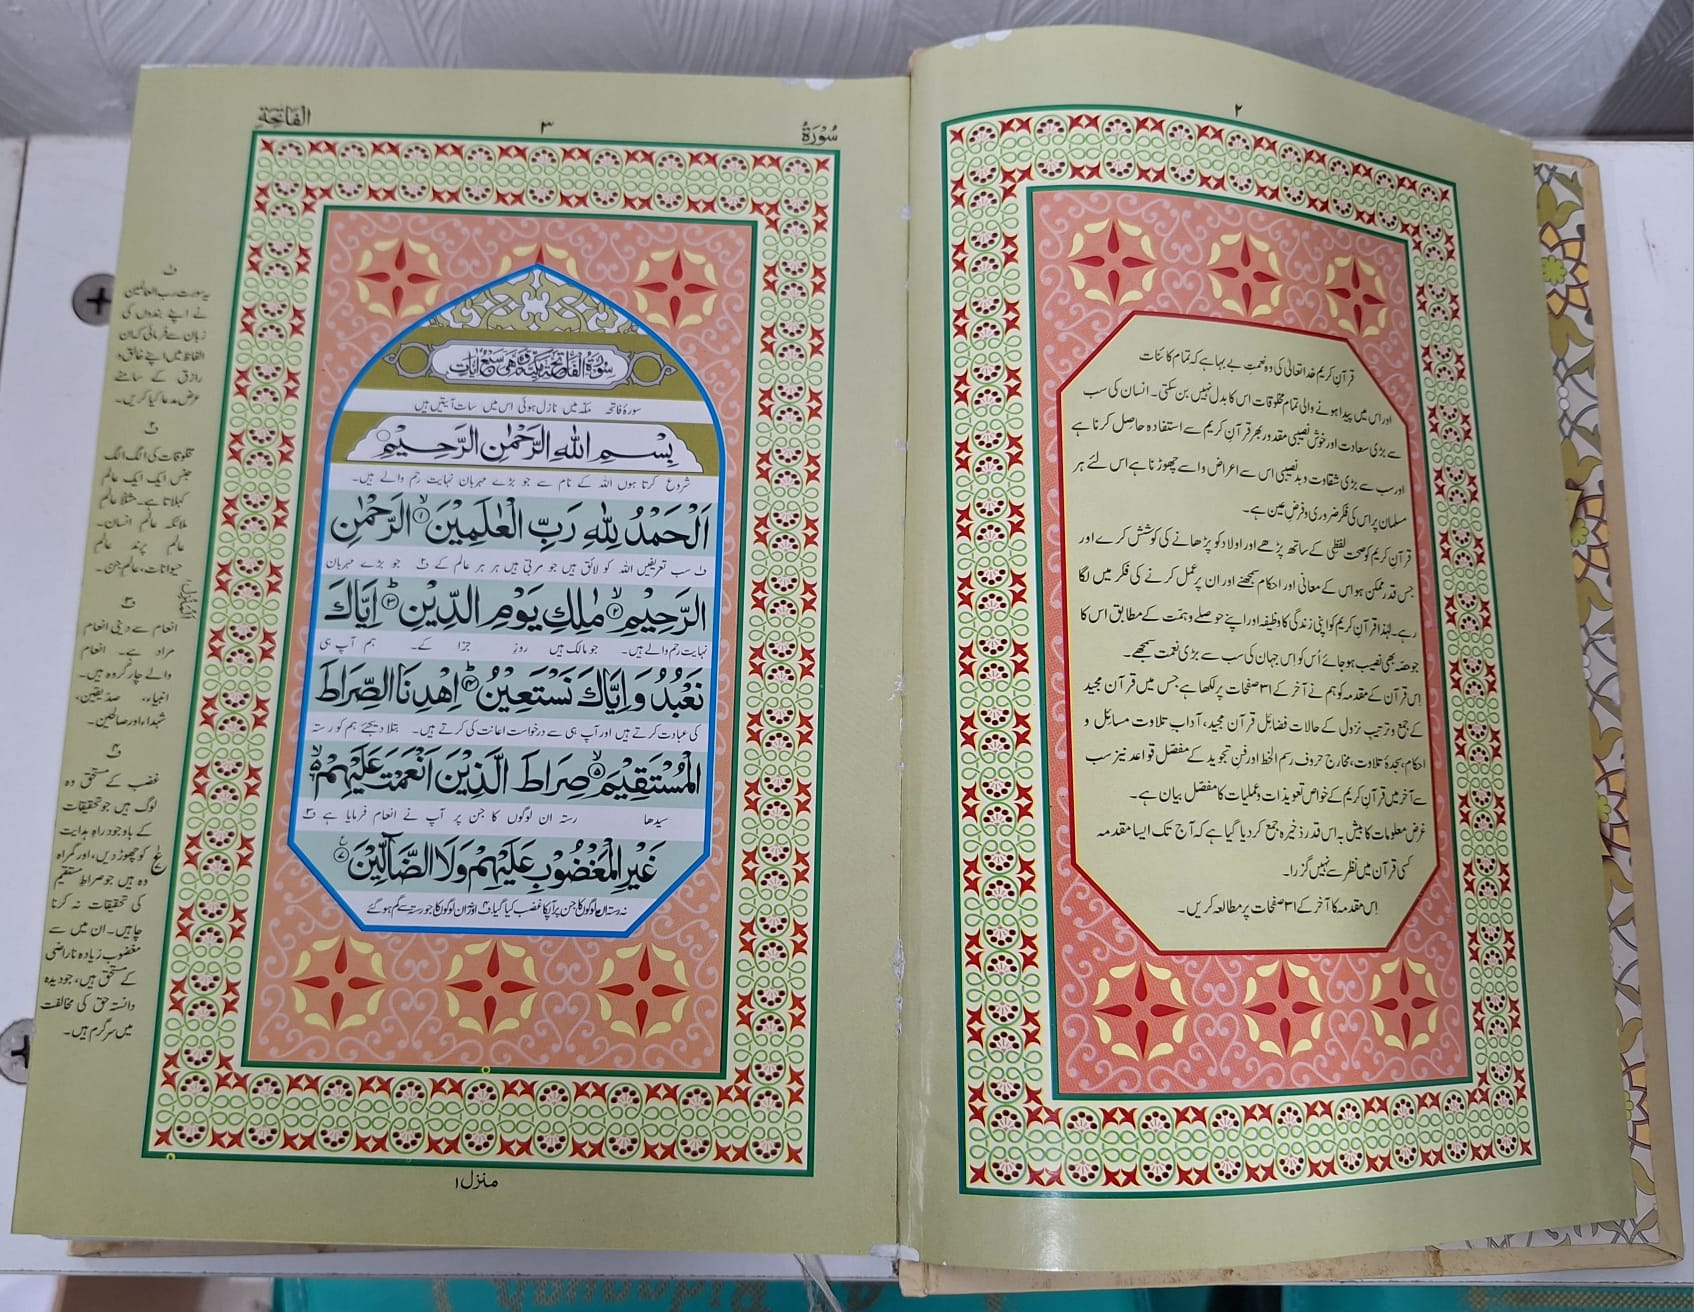 ۲
قرآنِ کریم خدا تعالیٰ کی وہ نعمتِ بے بہا ہے کہ تمام کائنات
اور اس میں پیدا ہونے والی تمام مخلوقات اس کا بدل نہیں بن سکتی۔ انسان کی سب
سے بڑی سعادت اور خوش نصیبی مقدور بھر قرآنِ کریم سے استفادہ حاصل کرنا ہے
اور سب سے بڑی شقاوت و بدنصیبی اس سے اعراض و اسے چھوڑنا ہے اس لئے ہر
مسلمان پر اس کی فکر ضروری و فرضِ عین ہے۔
قرآنِ کریم کو صحت لفظی کے ساتھ پڑھے اور اولاد کو پڑھانے کی کوشش کرے اور
جس قدر ممکن ہو اس کے معانی اور احکام سمجھنے اور ان پر عمل کرنے کی فکر میں لگا
رہے۔ لہٰذا قرآنِ کریم کو اپنی زندگی کا وظیفہ اور اپنے حوصلے و ہمت کے مطابق اس کا
جو حصّہ بھی نصیب ہو جائے اُس کو اِس جہان کی سب سے بڑی نعمت سمجھے۔
اِس قرآن کے مقدمہ کو ہم نے آخر کے ۳۱ صفحات پر لکھا ہے جس میں قرآن مجید
کے جمع و ترتیب نزول کے حالات فضائل قرآن مجید، آداب تلاوت مسائل و
احکام، سجدۂ تلاوت، مخارج حروف رسم الخط اور فنِ تجوید کے مفصّل قواعد نیز سب
سے آخر میں قرآنِ کریم کے خواص تعویذات و عملیات کا مفصّل بیان ہے۔
غرض معلومات کا بیش بہ اس قدر ذخیرہ جمع کر دیا گیا ہے کہ آج تک ایسا مقدمہ
کسی قرآن میں نظر سے نہیں گزرا۔
اِس مقدمہ کا آخر کے ۳۱ صفحات پر مطالعہ کریں۔
سُوْرَةُ ۳ الْفَاتِحَةِ
سُوْرَةُ الْفَاتِحَةِ مَكِّيَّةٌ وَّهِيَ سَبْعُ اٰيَاتٍ
سورۂ فاتحہ مکہ میں نازل ہوئی اس میں سات آیتیں ہیں
بِسْمِ اللّٰهِ الرَّحْمٰنِ الرَّحِيْمِ
شروع کرتا ہوں اللہ کے نام سے جو بڑے مہربان نہایت رحم والے ہیں۔
اَلْحَمْدُ لِلّٰهِ رَبِّ الْعٰلَمِيْنَ ۙ‏﴿۱﴾ الرَّحْمٰنِ
ف۱ سب تعریفیں اللہ کو لائق ہیں جو مربّی ہیں ہر ہر عالم کے ف۲ جو بڑے مہربان
الرَّحِيْمِ ۙ‏﴿۲﴾ مٰلِكِ يَوْمِ الدِّيْنِ ؕ‏﴿۳﴾ اِيَّاكَ
نہایت رحم والے ہیں۔ جو مالک ہیں روز جزا کے۔ ہم آپ ہی
نَعْبُدُ وَاِيَّاكَ نَسْتَعِيْنُ ؕ‏﴿۴﴾ اِهْدِنَا الصِّرَاطَ
کی عبادت کرتے ہیں اور آپ ہی سے درخواست اعانت کی کرتے ہیں۔ بتلا دیجئے ہم کو رستہ
الْمُسْتَقِيْمَ ۙ‏﴿۵﴾ صِرَاطَ الَّذِيْنَ اَنْعَمْتَ عَلَيْهِمْ ۙ‏﴿۶﴾
سیدھا رستہ ان لوگوں کا جن پر آپ نے انعام فرمایا ہے ف۳
غَيْرِ الْمَغْضُوْبِ عَلَيْهِمْ وَلَا الضَّآلِّيْنَ ‏﴿۷﴾
نہ رستہ ان لوگوں کا جن پر آپ کا غضب کیا گیا ف۴ اور نہ ان لوگوں کا جو رستہ سے گم ہو گئے
ف۱
یہ سورت رب العالمین
نے اپنے بندوں کی
زبان سے فرمائی کہ ان
الفاظ میں اپنے خالق و
رازق کے سامنے
عرض مدعا کیا کریں۔
ف۲
مخلوقات کی الگ الگ
جنس ایک ایک عالم
کہلاتا ہے۔ مثلاً عالمِ
ملائکہ عالمِ انسان۔
عالمِ پرند عالمِ
حیوانات، عالمِ جن۔
ف۳
انعام سے دینی انعام
مراد ہے۔ انعام
والے چار گروہ ہیں۔
انبیاء، صدیقین،
شہداء اور صالحین۔
ف۴
غضب کے مستحق وہ
لوگ ہیں جو تحقیقات
کے باوجود راہِ ہدایت
کو چھوڑ دیں، اور گمراہ
وہ ہیں جو صراطِ مستقیم
کی تحقیقات نہ کرنا
چاہیں۔ ان میں سے
مغضوب زیادہ ناراضی
کے مستحق ہیں، جو دیدہ
دانستہ حق کی مخالفت
میں سرگرم ہیں۔
منزل ۱